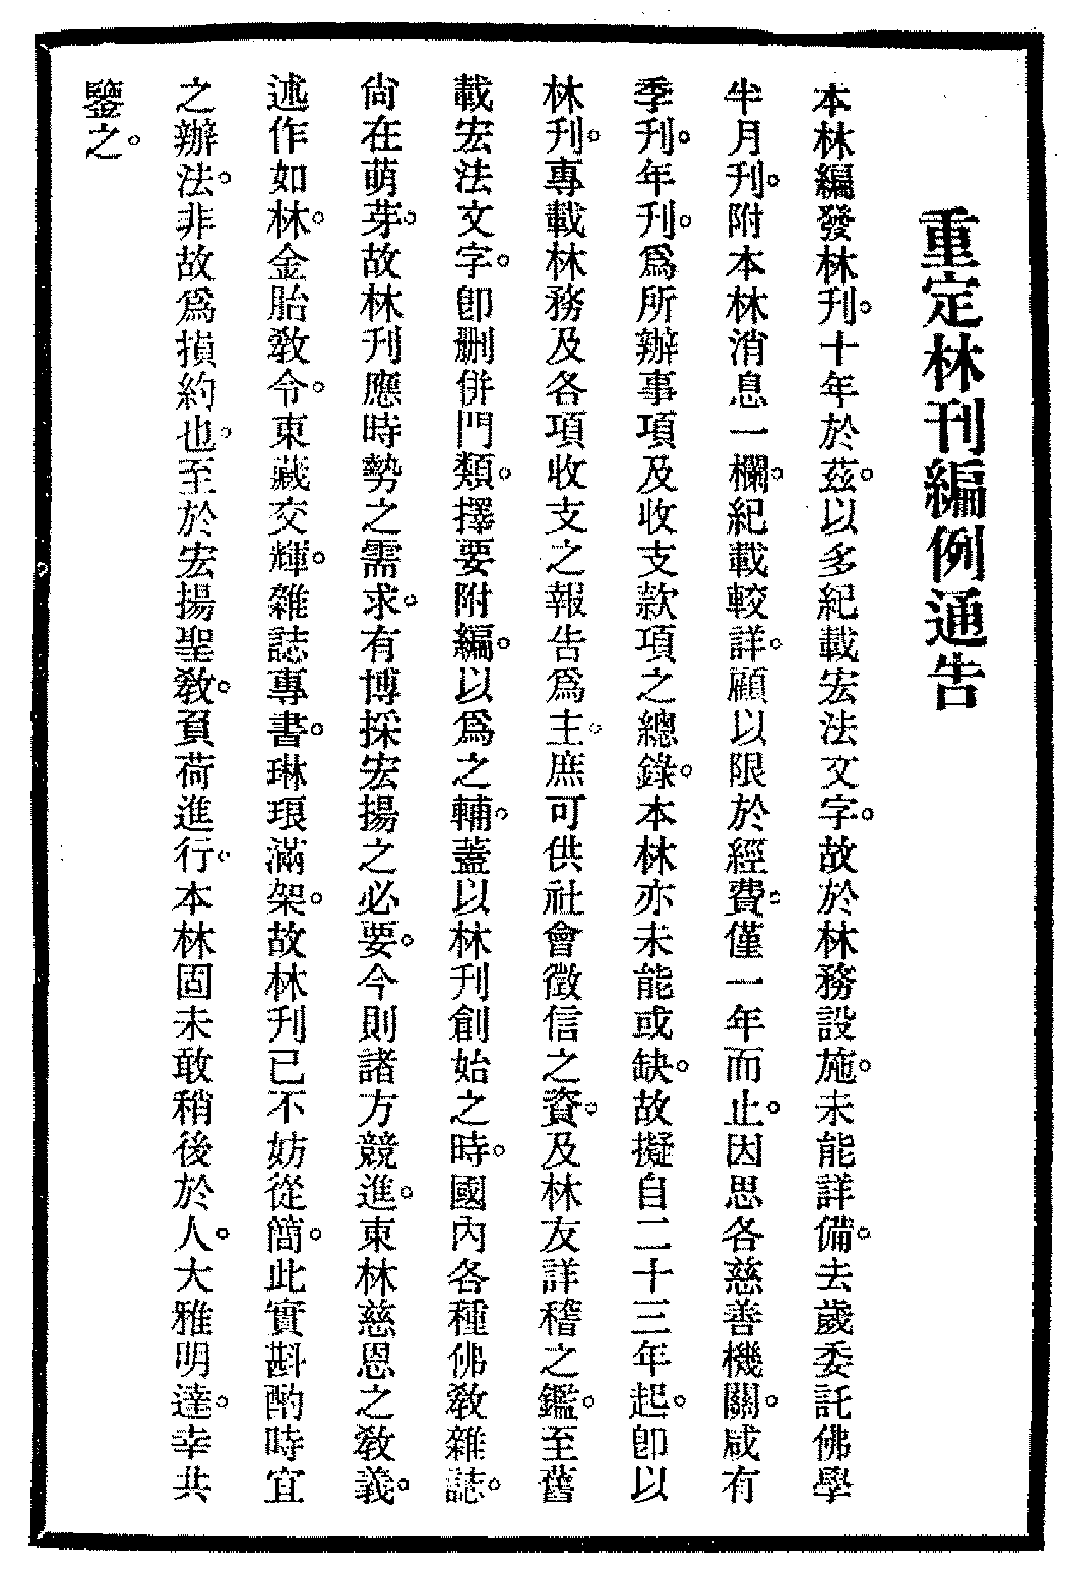 重定林刊編例通告
本林編發林刊。十年於茲。以多紀載宏法文字。故於林務設施。未能詳備。去歲委託佛學
半月刊。附本林消息一欄。紀載較詳。顧以限於經費。僅一年而止。因思各慈善機關。咸有
季刊。年刊。爲所辦事項及收支款項之總錄。本林亦未能或缺。故擬自二十三年起。卽以
林刊。專載林務及各項收支之報告爲主。庶可供社會徵信之資。及林友詳稽之鑑。至舊
載宏法文字。卽删併門類。擇要附編。以爲之輔。蓋以林刊創始之時。國內各種佛敎雜誌。
尙在萌芽。故林刊應時勢之需求。有博採宏揚之必要。今則諸方競進。東林慈恩之敎義。
述作如林。金胎敎令。東藏交輝。雜誌專書。琳琅滿架。故林刊已不妨從簡。此實斟酌時宜
之辦法。非故爲損約也。至於宏揚聖敎。負荷進行。本林固未敢稍後於人。大雅明達。幸共
鑒之。